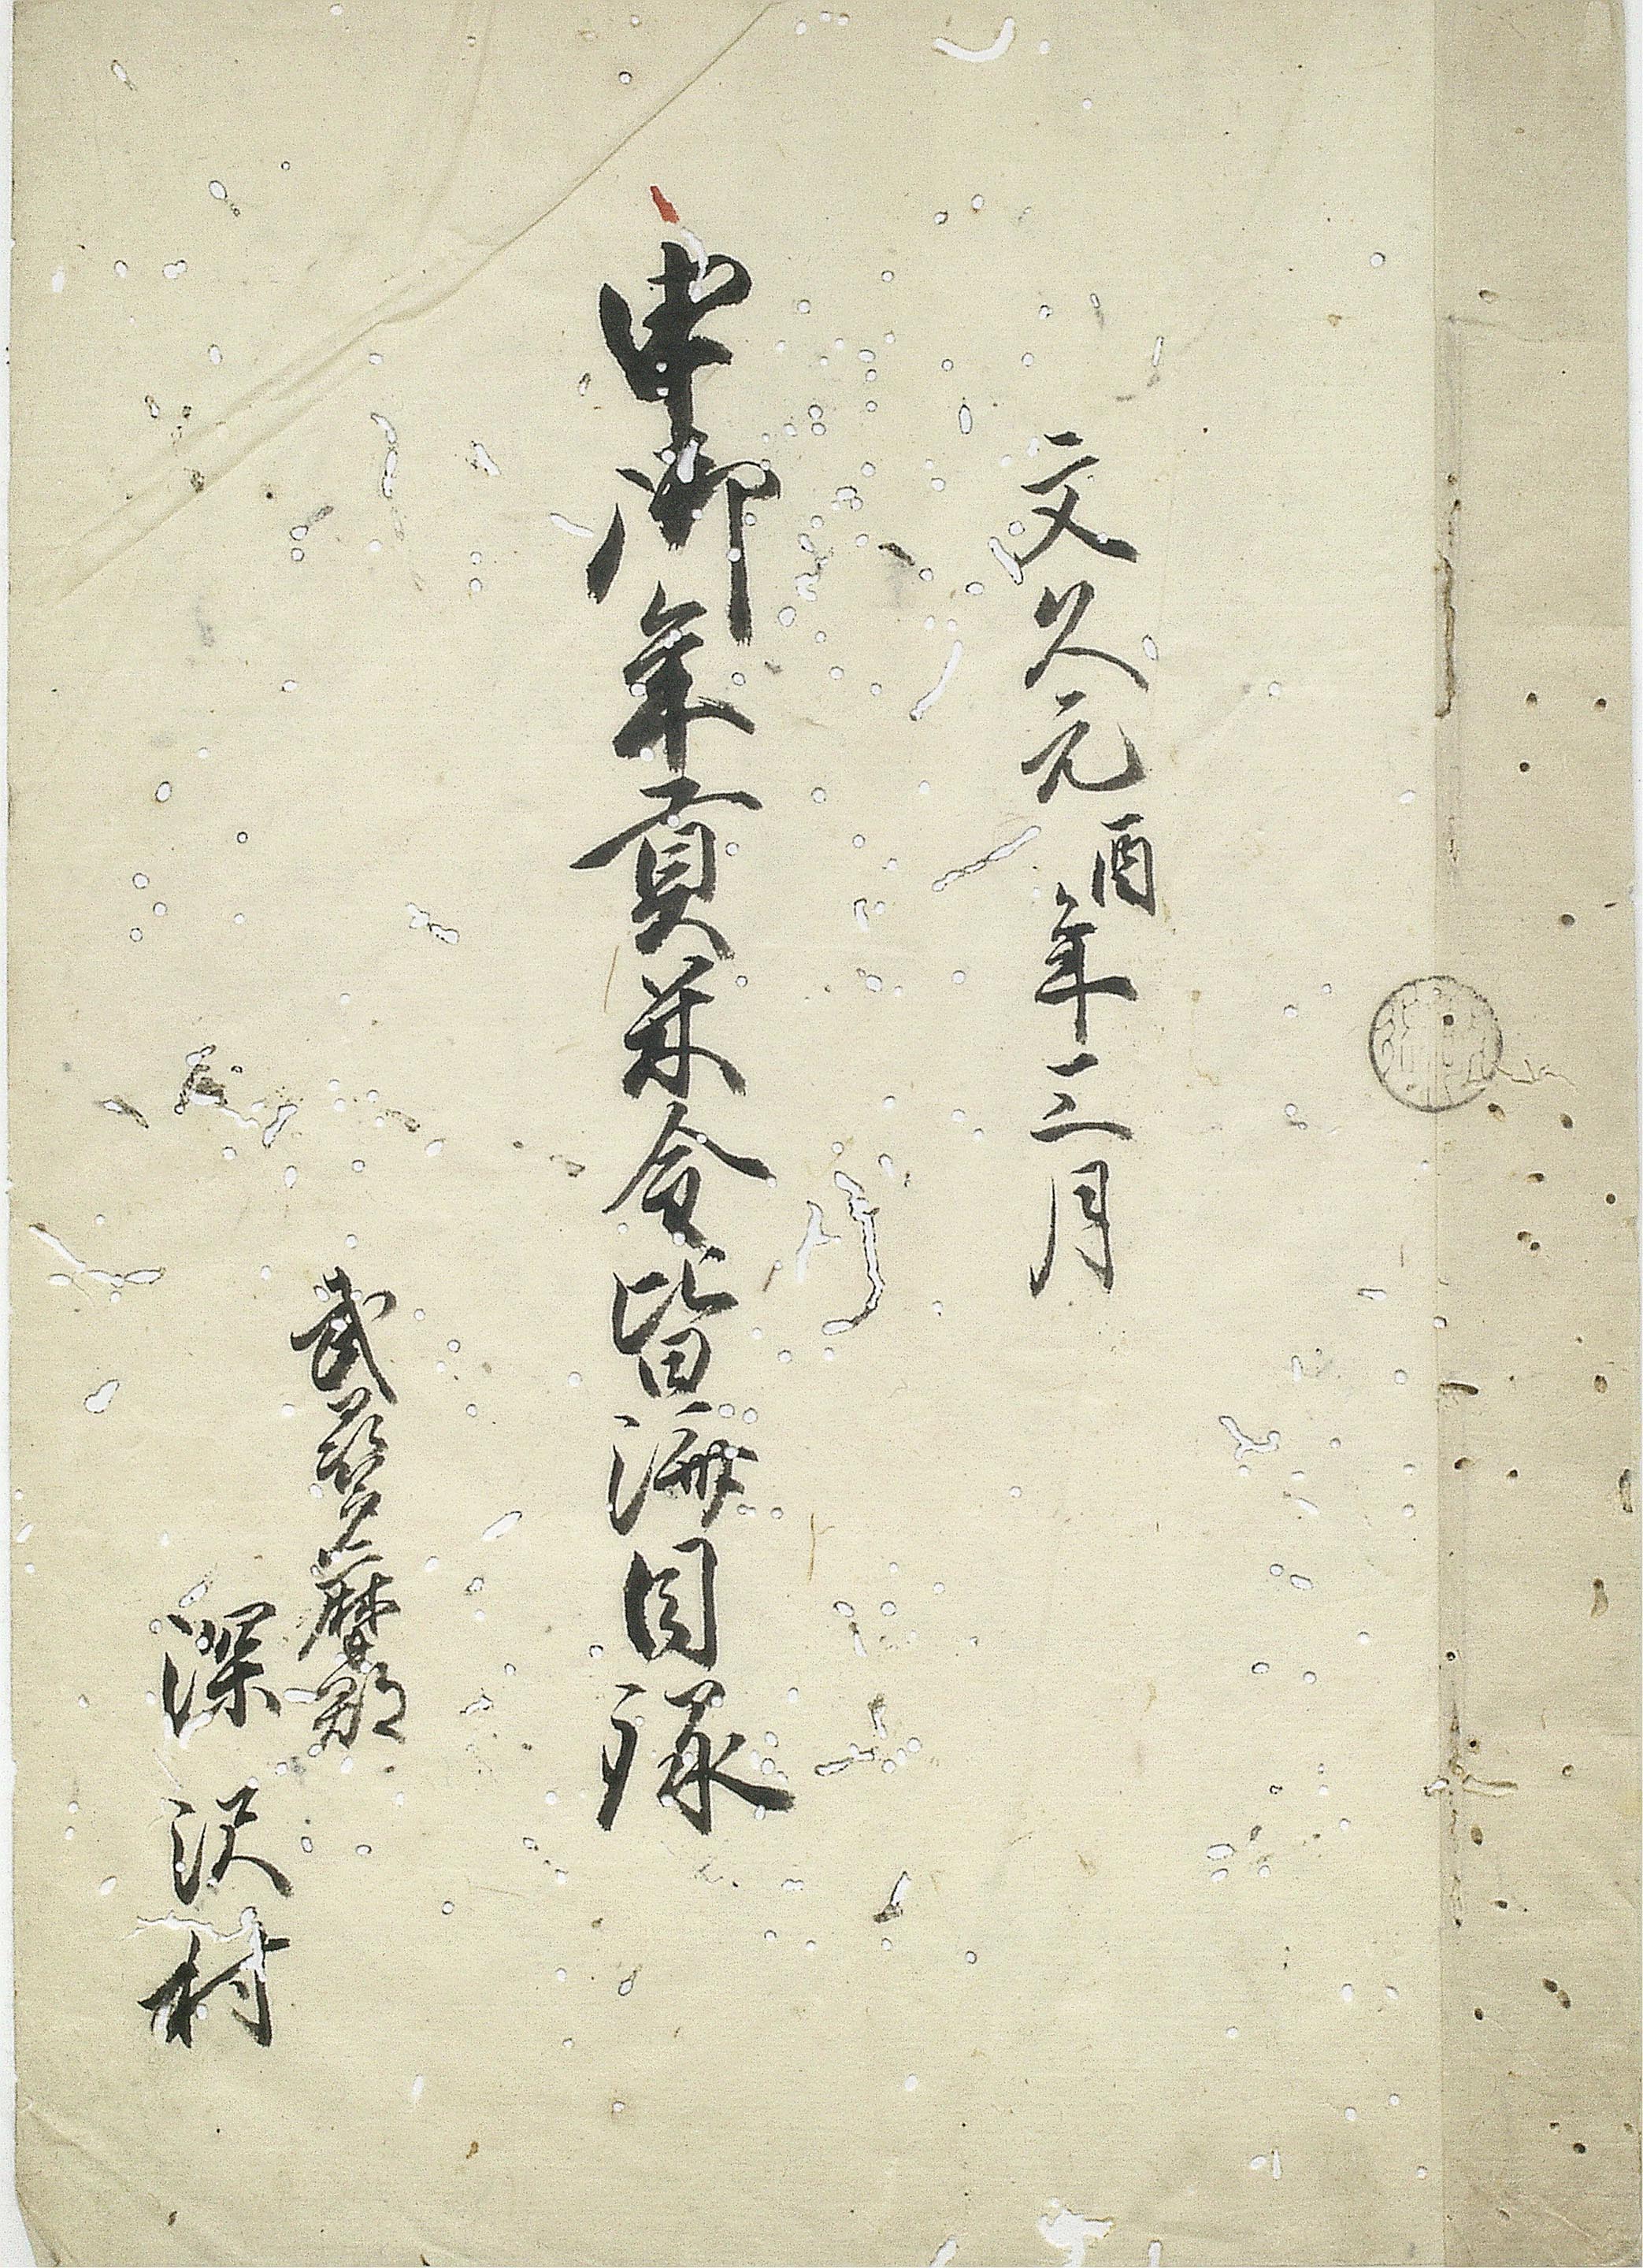 文久元酉年三月
申御年貢米金皆済目録
武州多摩郡
深沢村